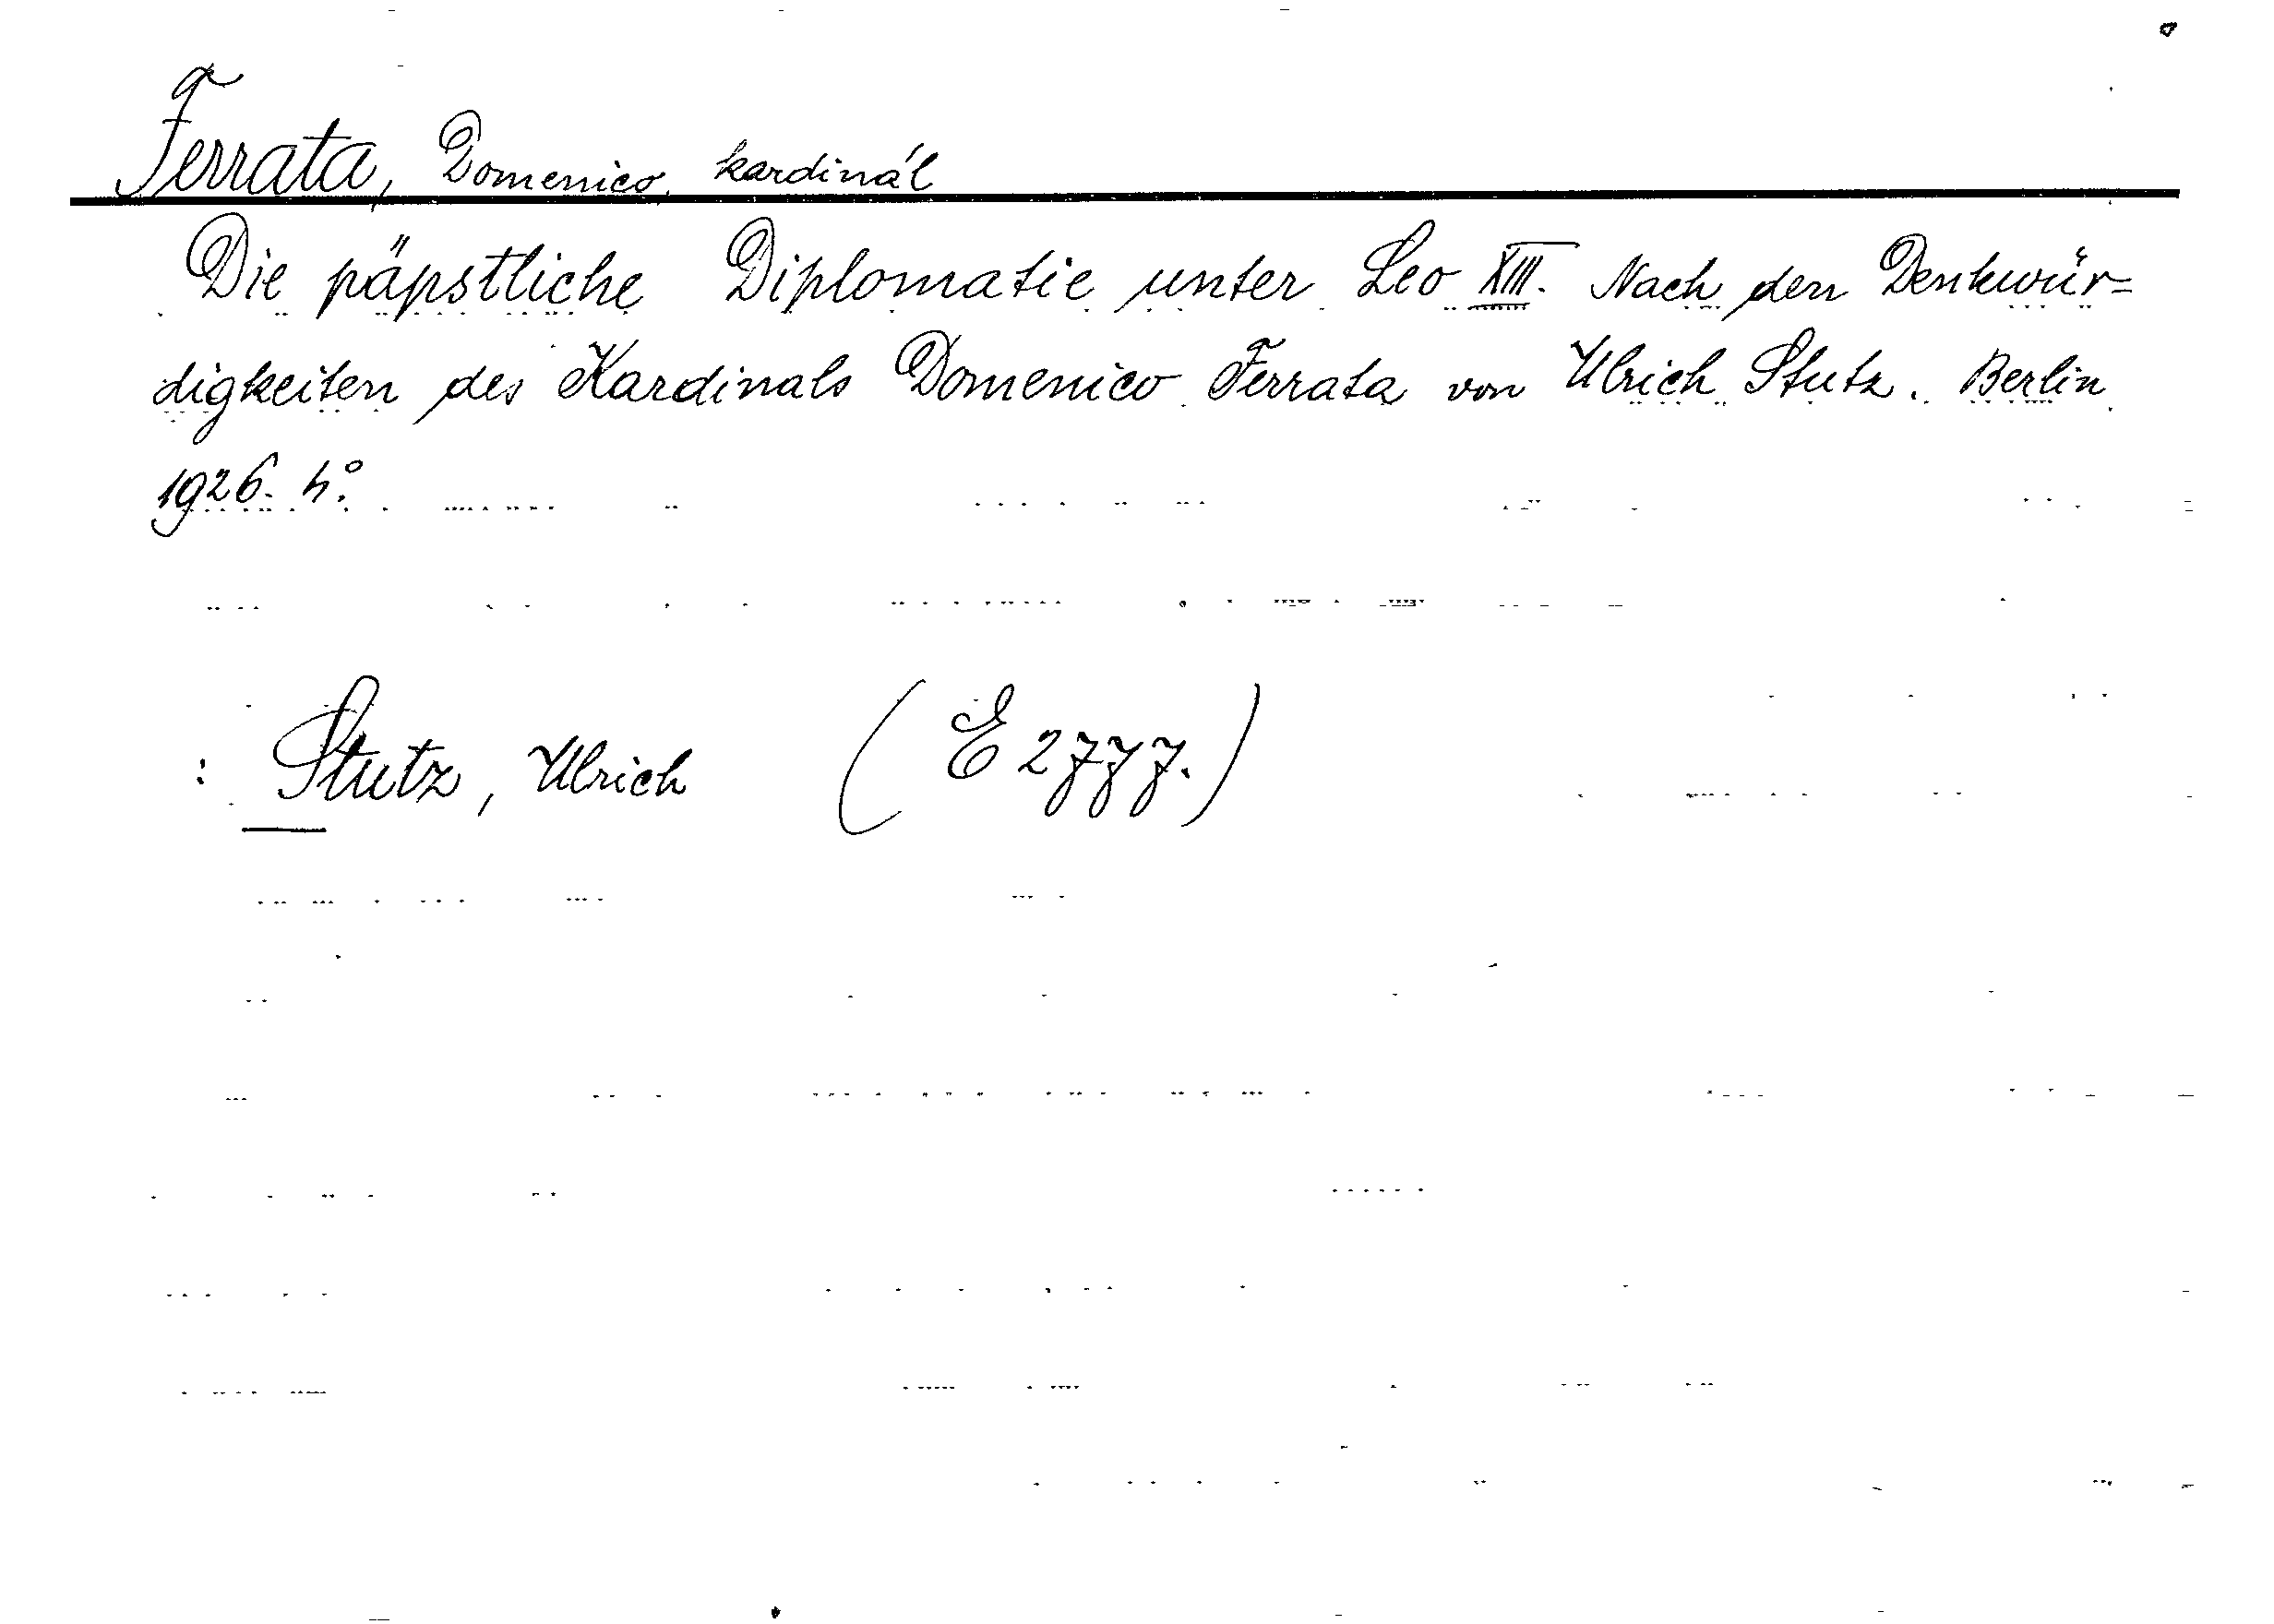 Ferrata, Domenico, kardinál
Die päpstliche Diplomatie unter Leo XIII. Nach den Denkwür=
digkeiten des Kardinals Domenico Ferrata von Ulrich Stutz. Berlin
1926. 4°.
: Stutz, Ulrich (E 2777.)